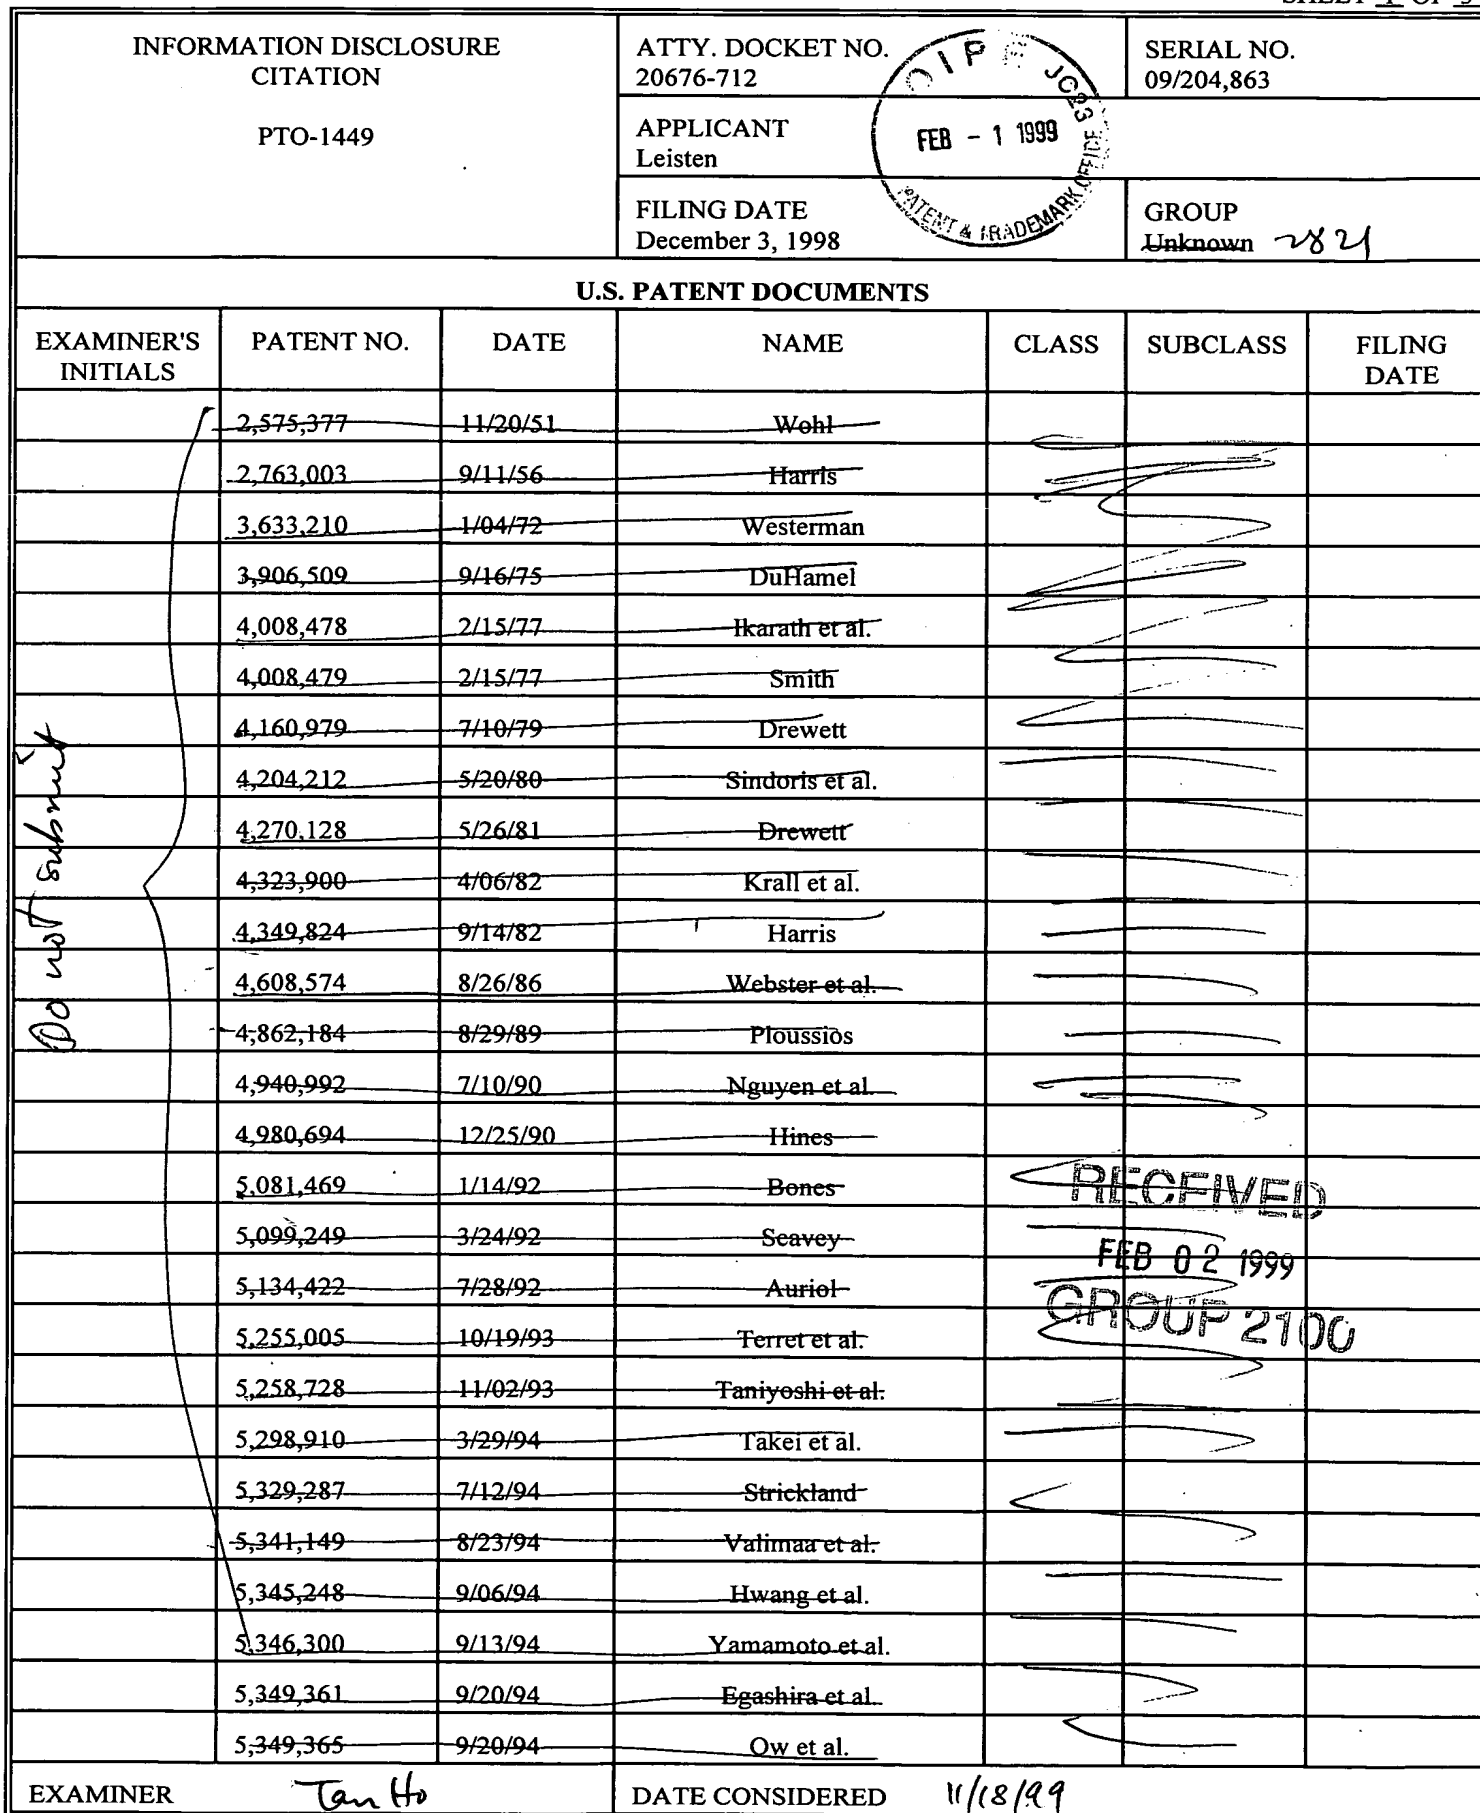 INFORMATION DISCLOSURE
CITATION
PTO-1449
ATTY. DOCKET NO.
20676-712
SERIAL NO.
09/204,863
APPLICANT
Leisten
FILING DATE
December 3, 1998
GROUP
Unknown 2821
OIPE JC23
FEB - 1 1999
PATENT & TRADEMARK OFFICE
U.S. PATENT DOCUMENTS
EXAMINER'S INITIALS PATENT NO. DATE NAME CLASS SUBCLASS FILING DATE
2,575,377 11/20/51 Wohl
2,763,003 9/11/56 Harris
3,633,210 1/04/72 Westerman
3,906,509 9/16/75 DuHamel
4,008,478 2/15/77 Ikarath et al.
4,008,479 2/15/77 Smith
4,160,979 7/10/79 Drewett
4,204,212 5/20/80 Sindoris et al.
4,270,128 5/26/81 Drewett
4,323,900 4/06/82 Krall et al.
4,349,824 9/14/82 Harris
4,608,574 8/26/86 Webster et al.
4,862,184 8/29/89 Ploussios
4,940,992 7/10/90 Nguyen et al.
4,980,694 12/25/90 Hines
5,081,469 1/14/92 Bones
5,099,249 3/24/92 Seavey
5,134,422 7/28/92 Auriol
5,255,005 10/19/93 Terret et al.
5,258,728 11/02/93 Taniyoshi et al.
5,298,910 3/29/94 Takei et al.
5,329,287 7/12/94 Strickland
5,341,149 8/23/94 Valimaa et al.
5,345,248 9/06/94 Hwang et al.
5,346,300 9/13/94 Yamamoto et al.
5,349,361 9/20/94 Egashira et al.
5,349,365 9/20/94 Ow et al.
Do not submit
RECEIVED
FEB 02 1999
GROUP 2100
EXAMINER Tan Ho
DATE CONSIDERED 11/18/99